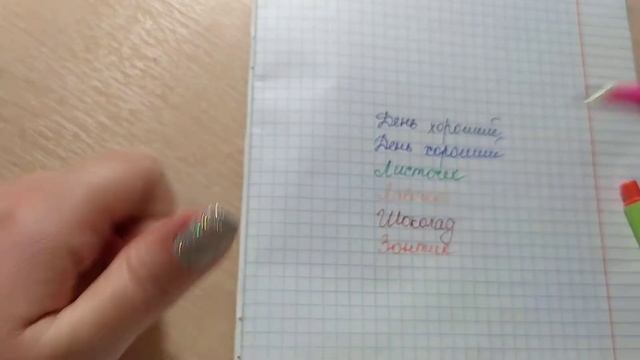 День хороший,
День хороший
Листочек
Шоколад
Зонтик